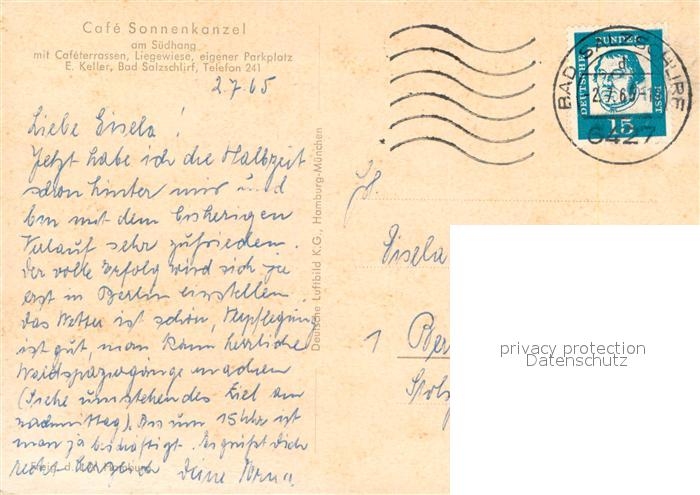 Café Sonnenkanzel
am Südhang
mit Caféterrassen, Liegewiese, eigener Parkplatz
E. Keller, Bad Salzschlirf, Telefon 241
2.7.65
Liebe Gisela!
Jetzt habe ich die Halbzeit
schon hinter mir und
bin mit dem bisherigen
Verlauf sehr zufrieden.
Der volle Erfolg wird sich ja
erst in Berlin einstellen.
Das Wetter ist schön, Verpflegung
ist gut, man kann herrliche
Waldspaziergänge machen
(Siehe umstehendes Ziel am
nachmittag). Bis um 15 Uhr ist
man ja beschäftigt. Es grüßt Dich
recht herzlich Deine
Deutsche Luftbild K.G., Hamburg-München
DEUTSCHE BUNDESPOST
15
BAD SALZSCHLIRF
d
2.7.65
6427
Gisela
1 Ber
privacy protection
Datenschutz